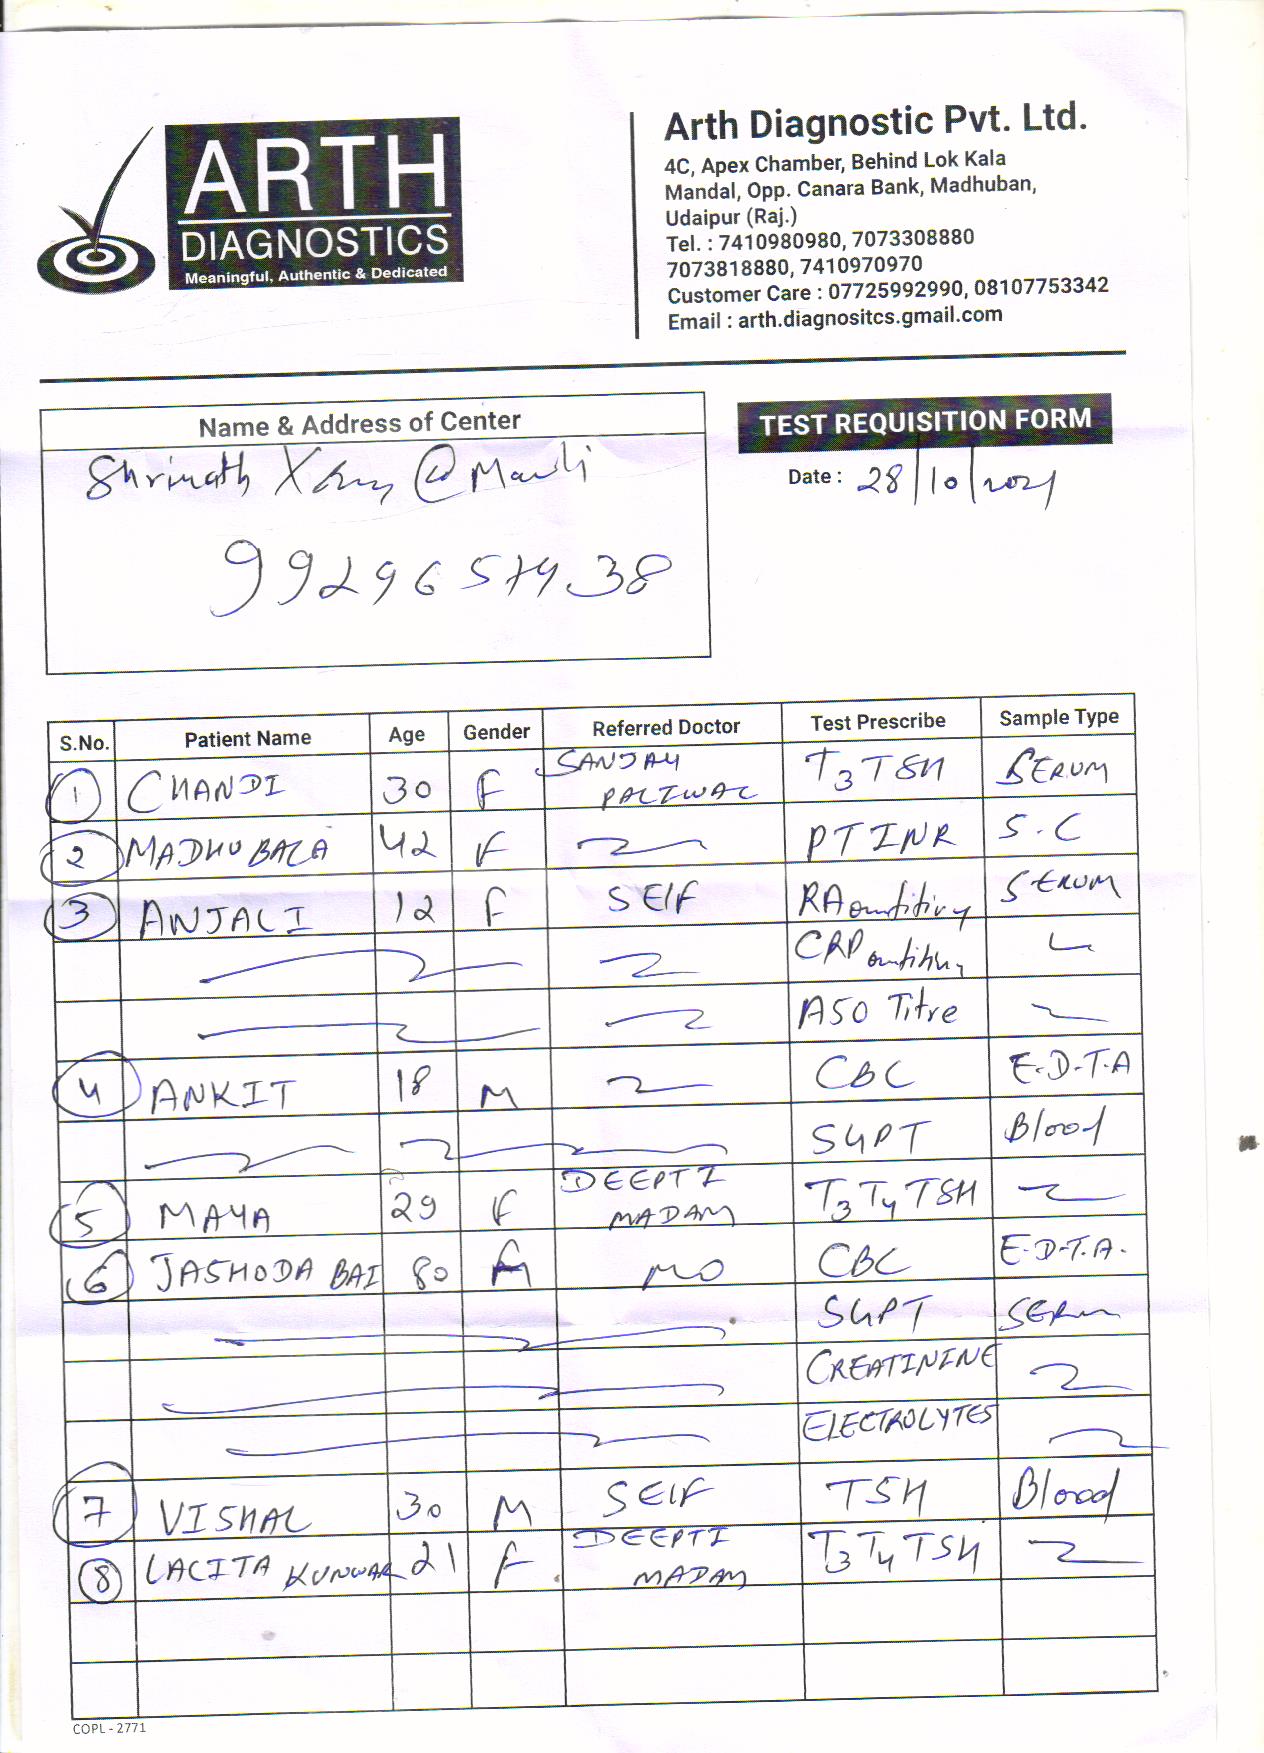 ARTH
DIAGNOSTICS
Meaningful, Authentic & Dedicated
Arth Diagnostic Pvt. Ltd.
4C, Apex Chamber, Behind Lok Kala
Mandal, Opp. Canara Bank, Madhuban,
Udaipur (Raj.)
Tel. : 7410980980, 7073308880
7073818880, 7410970970
Customer Care : 07725992990, 08107753342
Email : arth.diagnositcs.gmail.com
Name & Address of Center
Shrinath X @ Mavli
TEST REQUISITION FORM
Date : 28/10/2021
S.No. Patient Name Age Gender Referred Doctor Test Prescribe Sample Type
1 CHANDI 30 F SANJAY PALIWAL T3 TSH SERUM
2 MADHU BALA 42 F PT INR S.C
3 ANJALI 12 F SELF RA SERUM
CRP
ASO Titre
4 ANKIT 18 M CBC E.D.T.A
SGPT Blood
5 MAYA 29 F DEEPTI MADAM T3 T4 TSH
6 JASHODA BAI 80 F MO CBC E.D.T.A.
SGPT SERUM
CREATININE
ELECTROLYTES
7 VISHAL 30 M SELF TSH Blood
8 LALITA KUNWAR 21 F DEEPTI MADAM T3 T4 TSH
COPL - 2771